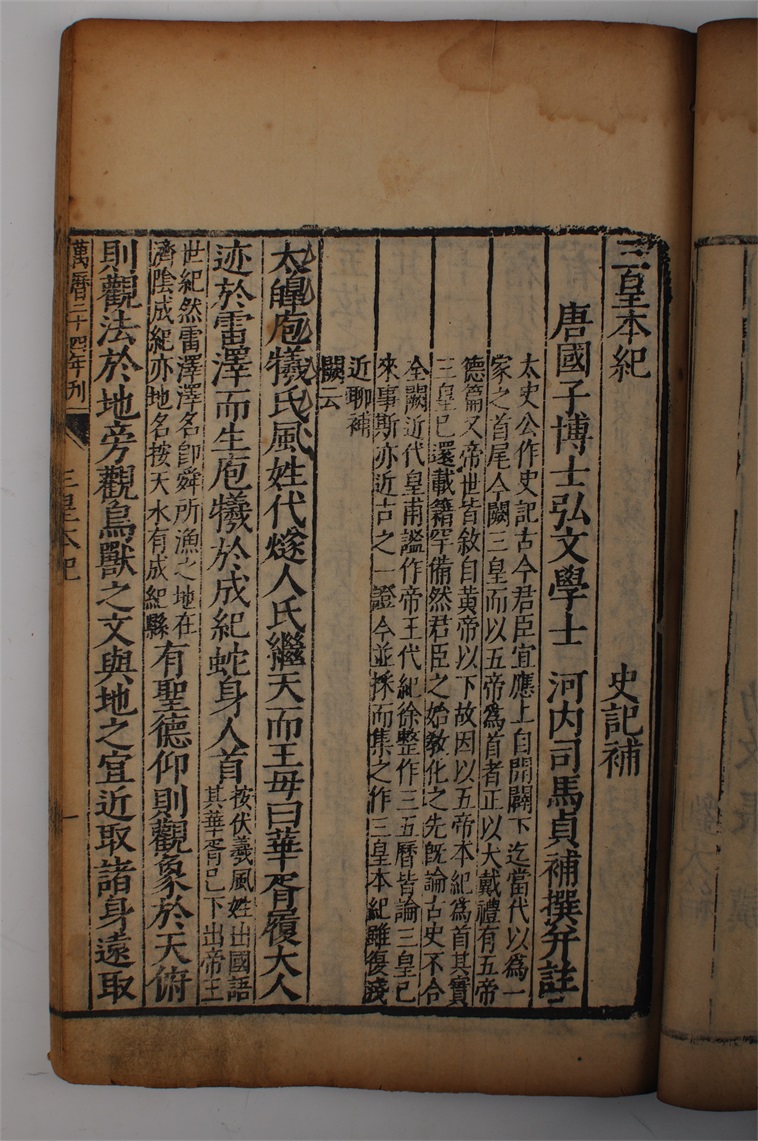 三皇本紀 史記補
唐國子博士弘文學士 河内司馬貞補撰并註
太史公作史記古今君臣宜應上自開闢下迄當代以為一
家之首尾今闕三皇而以五帝為首者正以大戴禮有五帝
德篇又帝世皆敘自黃帝以下故因以五帝本紀為首其實
三皇已還載籍罕備然君臣之始教化之先既論古史不合
全闕近代皇甫謐作帝王代紀徐整作三五曆皆論三皇已
來事斯亦近古之一證今並採而集之作三皇本紀雖復淺
近聊補
闕云
太皥庖犧氏風姓代燧人氏繼天而王母曰華胥履大人
迹於雷澤而生庖犧於成紀蛇身人首
按伏羲風姓出國語
其華胥已下出帝王
世紀然雷澤澤名即舜所漁之地在
濟陰成紀亦地名按天水有成紀縣
有聖德仰則觀象於天俯
則觀法於地旁觀鳥獸之文與地之宜近取諸身遠取
萬曆二十四年刊
三皇本紀
一